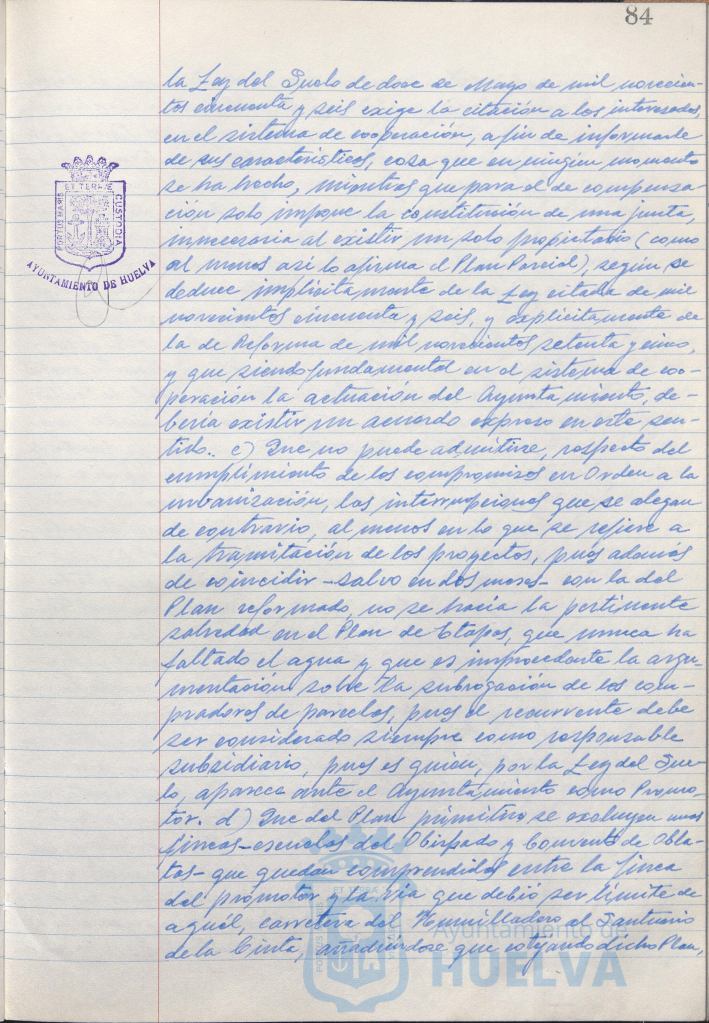 84
la Ley del Suelo de doce de Mayo de mil novecien-
tos cincuenta y seis exige la citación a los interesados,
en el sistema de cooperación, a fin de informarle
de sus características, cosa que en ningún momento
se ha hecho, mientras que para el de compensa-
ción solo impone la constitución de una junta,
innecesaria al existir un solo propietario (como
al menos así lo afirma el Plan Parcial), según se
deduce implícitamente de la Ley citada de mil
novecientos cincuenta y seis, y explícitamente de
la de Reforma de mil novecientos setenta y cinco,
y que siendo fundamental en el sistema de coo-
peración la actuación del Ayuntamiento, de-
bería existir un acuerdo expreso en este sen-
tido.. c) Que no puede admitirse, respecto del
cumplimiento de los compromisos en Orden a la
urbanización, las interrupciones que se alegan
de contrario, al menos en lo que se refiere a
la tramitación de los proyectos, pues además
de coincidir -salvo en dos meses- con la del
Plan reformado, no se hacía la pertinente
salvedad en el Plan de Etapas, que nunca ha
faltado el agua y que es improcedente la argu-
mentación sobre la subrogación de los com-
pradores de parcelas, pues el recurrente debe
ser considerado siempre como responsable
subsidiario, pues es quien, por la Ley del Sue-
lo, aparece ante el Ayuntamiento como Promo-
tor. d) Que del Plan primitivo se excluyen unas
fincas -escuelas del Obispado y Convento de Obla-
tas- que quedan comprendidas entre la finca
del promotor y la vía que debió ser límite de
aquél, carretera del Humilladero al Santuario
de la Cinta, añadiéndose que cotejando dicho Plan,
PORTUS MARIS
ET TERRAE
CUSTODIA
AYUNTAMIENTO DE HUELVA
Ayuntamiento de
HUELVA